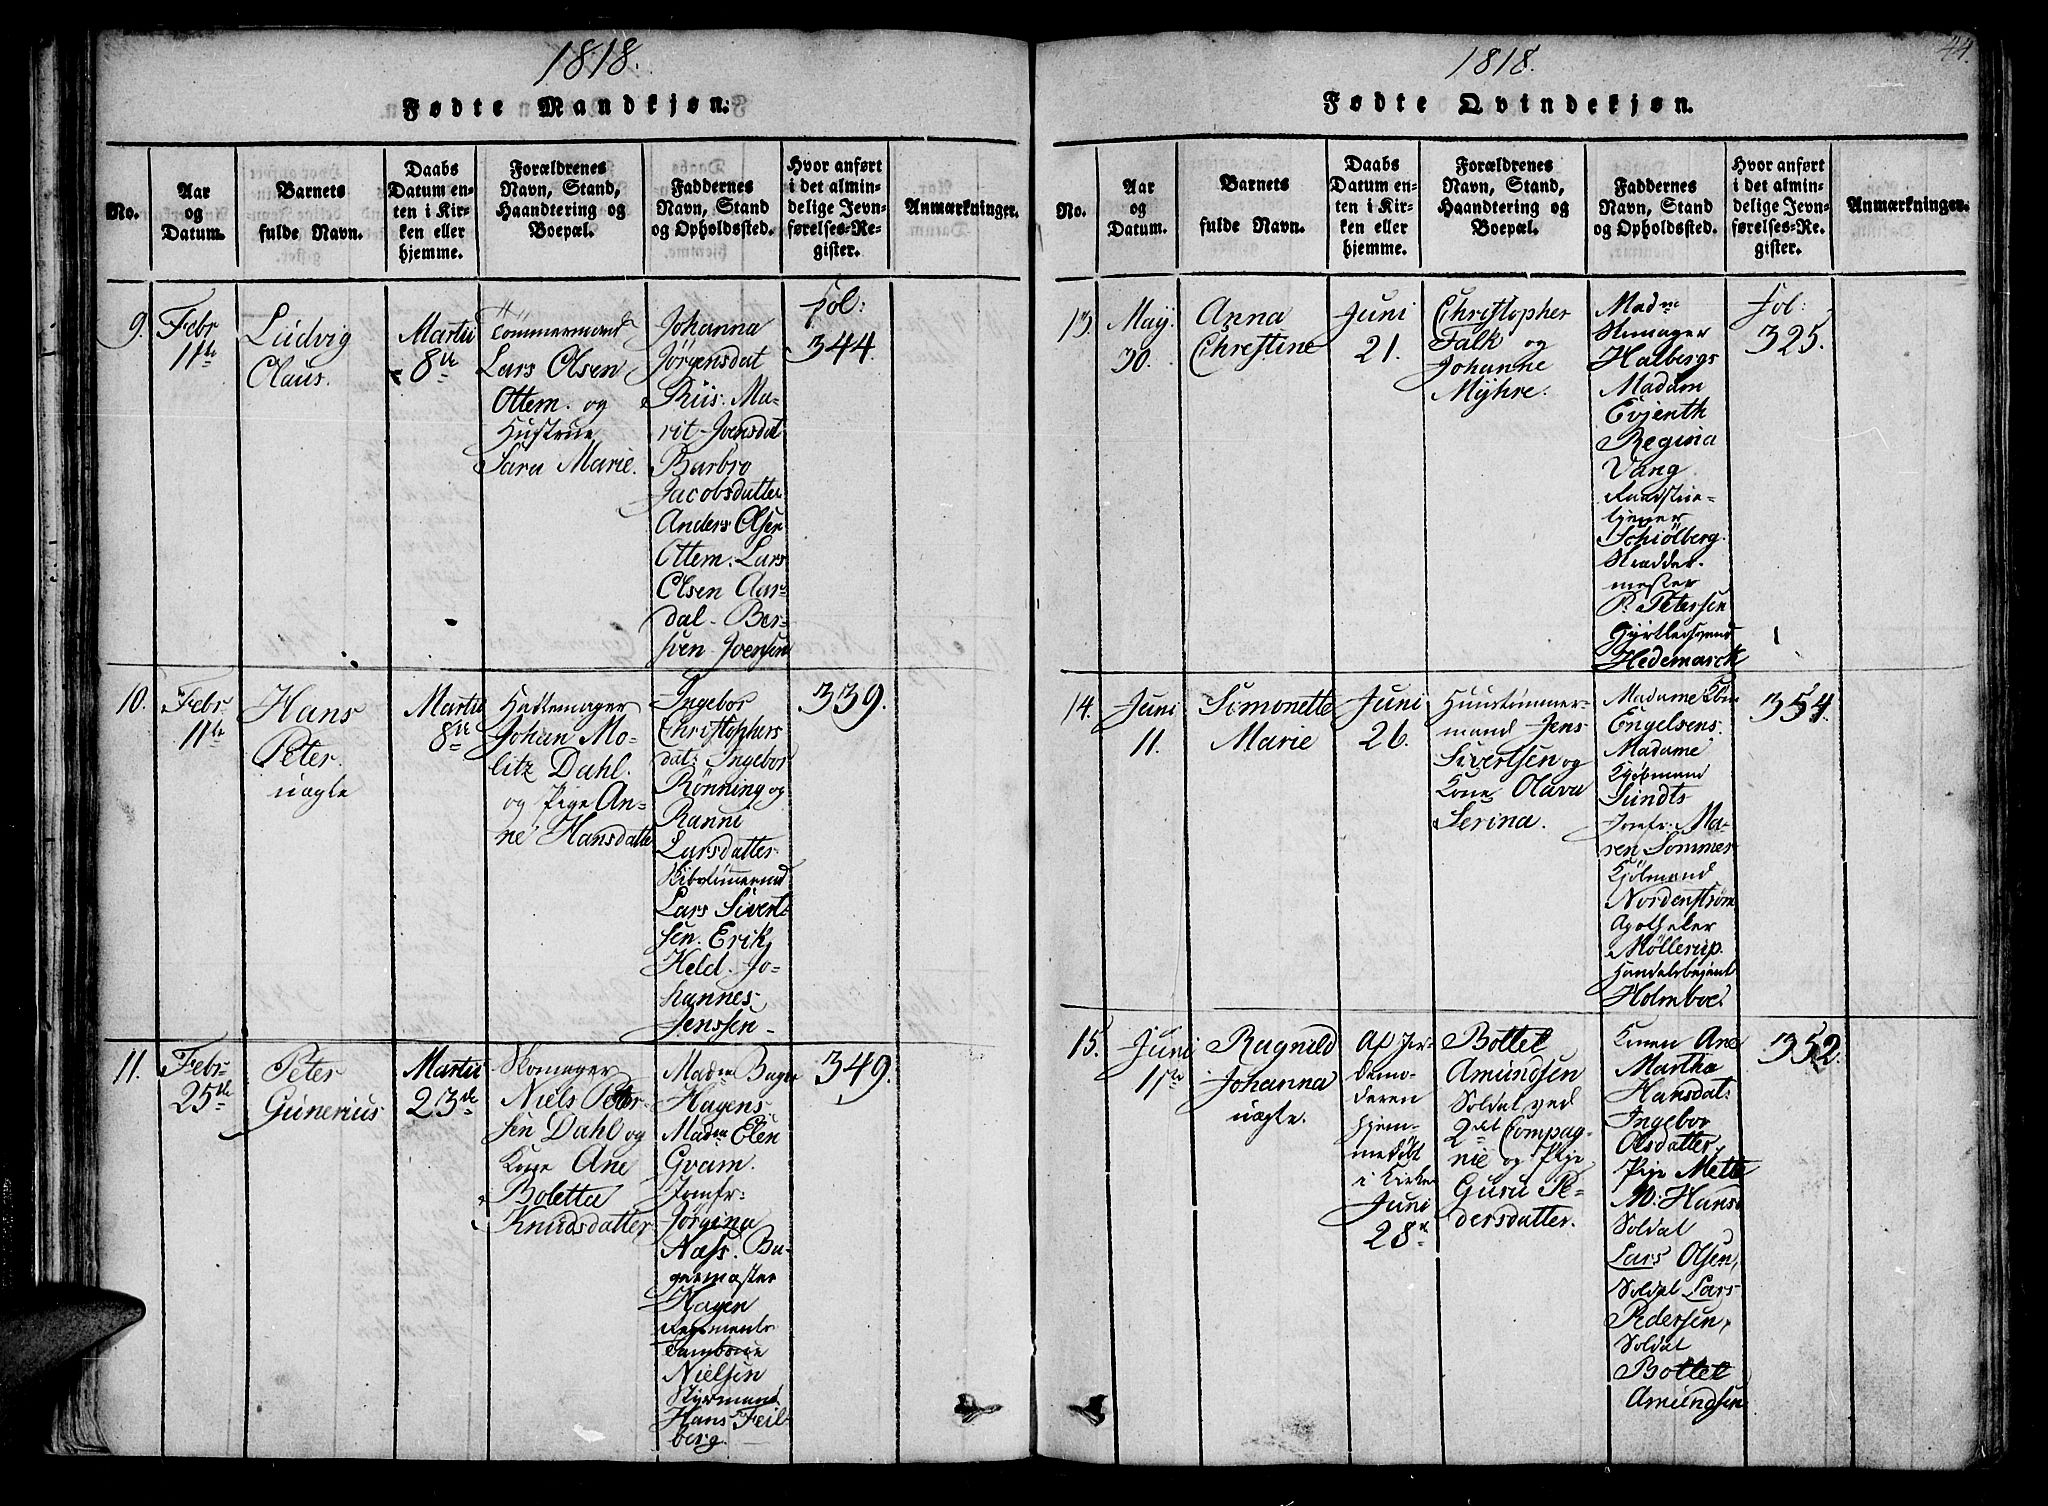 1818.
Fødte Mandkjøn:
No.
Aar
og
Datum.
Barnets
fulde Navn.
Daabs
Datum en-
ten i Kir-
ken eller
hjemme.
Forældrenes
Navn, Stand,
Haandtering og
Boepæl.
Faddernes
Navn, Stand
og Opholdssted.
Hvor anført
i det almin-
delige Jevn-
førelses-Re-
gister.
Anmærkninger.
9.
Febr
11te
Ludvig
Claus.
Martii
8de
Tømmermand
Lars Olsen
Ottem. og
Hustrue
Sara Marie.
Johanna
Jørgensdat
Riis. Ma-
rit Joensdat
Barbro
Jacobsdatter
Anders Olsen
Ottem. Lars
Olsen Aar-
dal. Ber-
sven Joensen
Fol:
344.
10.
Febr.
11te
Hans
Peter.
uægte
Martii
8de
Hattemager
Johan Mo-
litz Dahl.
og Pige An-
ne Hansdatte
Ingebor
Christophers
dat: Ingebor
Rønning og
Ranni
Larsdatter
Lars Sivert
sen. Erik
Held. Jo-
hannes
Jenssen
339.
11.
Febr.
25de
Peter
Gunerius
Martii
23de
Skomager
Niels Peter-
sen Dahl og
Kone Ane
Boletta
Knudsdatter
Madm Bager
Hagens
Madm Elen
Gram.
Jomfr.
Jørgina
Næss. Ba-
germester
Hagen
Regiments
Tambour
Nielsen
Styrmand
Hans Feil-
berg.
349.
44.
1818.
Fødte Qvindekjøn.
No.
Aar
og
Datum.
Barnets
fulde Navn.
Daabs
Datum en-
ten i Kir-
ken eller
hjemme.
Forældrenes
Navn, Stand,
Haandtering og
Boepæl.
Faddernes
Navn, Stand
og Opholdssted.
Hvor anført
i det almin-
delige Jevn-
førelses-Re-
gister.
Anmærkninger.
13.
May.
30.
Anna
Christine
Juni
21.
Christopher
Falk og
Johanne
Myhre.
Madm
Skomager
Halbergs
Madam
Evjenth
Regina
Vang.
Schiølberg.
Skrædder
mester
P. Petersen
Gjørtlersvend
Hedemarck
Fol:
325.
14.
Juni
11.
Simonette
Marie
Juni
26.
Huustømmer-
mand Jens
Sivertsen og
Kone Olava
Serina.
Madame
Engelsens.
Madame
Kjøbmand
Sundts
Jomfr: Ma-
ren Sommer
Kjøbmand
Nordenstrøm
Apotheker
Møllerup.
Handelsbetjent
Holmboe.
354.
15.
Juni
11te
Ragnild
Johanna
uægte.
Af Jor-
demo-
deren
hjem-
medøbt
i Kirke
Juni
28de
Bottel
Amundsen
Soldat ved
2det Compag-
nie og Pige
Guru Pe-
dersdatter.
Konen Ane
Martha
Hansdat:
Ingebor
Olsdatter,
Pige Mette
M: Hansd
Soldat
Lars Olsen,
Soldat Lars
Pedersen,
Soldat
Bottel
Amundsen
352.